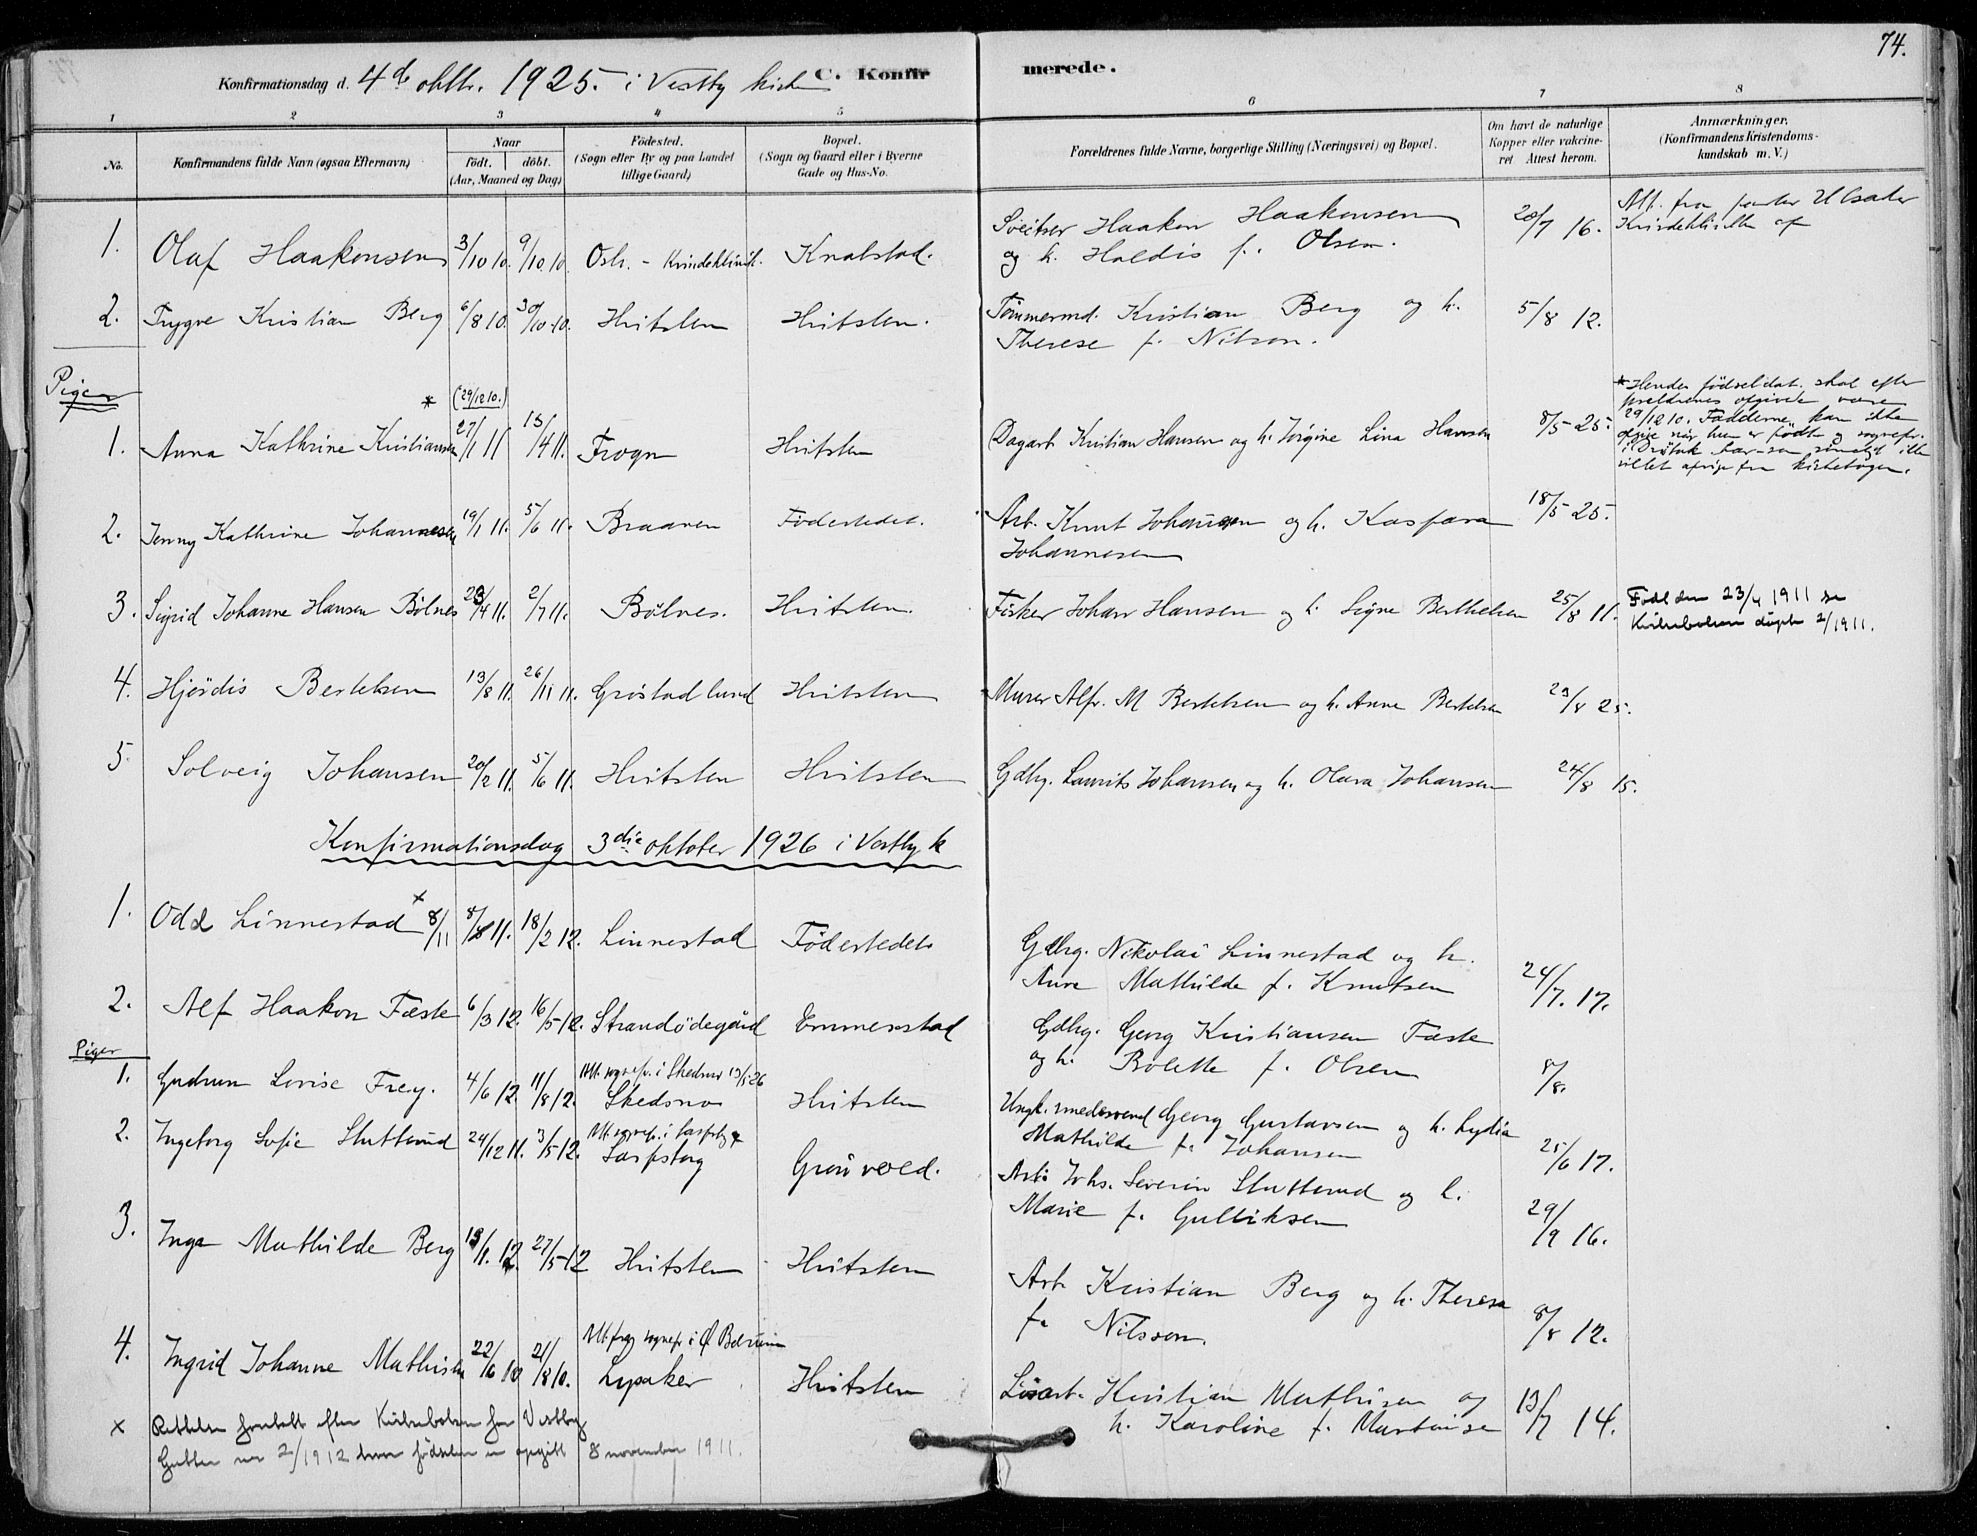 74.
Konfirmationsdag d. 4de oktbr. 1925. i Vestby kirke C. Konfirmerede.
1 2 3 4 5 6 7 8
No. Konfirmandens fulde Navn (ogsaa Efternavn) Naar født. døbt. (Aar, Maaned og Dag) Fødested. (Sogn eller By og paa Landet tillige Gaard) Bopæl. (Sogn og Gaard eller i Byerne Gade og Hus-No. Forældrenes fulde Navne, borgerlige Stilling (Næringsvei) og Bopæl. Om havt de naturlige Kopper eller vaccineret Attest herom. Anmærkninger. (Konfirmandens Kristendomskundskab m. V.)
1. Olaf Haakonsen 3/10 10. 9/10 10. Oslo - Kvindeklinik. Knabstad. Sveitser Haakon Haakonsen 28/7 16. Att. fra
og h. Haldis f. Olsen.
2. Trygve Kristian Berg 6/8 10. 30/10 10. Hvitsten Hvitsten. Tømmermd. Kristian Berg og h. 5/8 12.
Therese f. Nilson.
Piger
1. Anna Kathrine Kristiansen * (29/12 10.) 27/1 11 13/4 11. Frogn Hvitsten Dagarb. Kristian Hansen og h. Jørgine Lina Hansen 8/5 25. * Hendes fødselsdat. skal efter
forældrenes opgivende være
29/12 10. Fadderne kan ikke
opgive når hun er født og sognepr.
i Drøbak har
villet afvige fra kirkebogen.
2. Jenny Kathrine Johannesen 19/1 11. 5/6 11. Braaten Fødestedet. Arb. Knut Johansen og h. Kaspara 18/5 25.
Johannesen
3. Sigrid Johanne Hansen Bølnes 23/4 11. 2/7 11. Bølnes. Hvitsten. Fisker Johan Hansen og h. Signe Berthelsen 25/8 11. Født den 23/4 1911 se
Kirkeboken døpte 2/1911.
4. Hjørdis Bertelsen 13/8 11. 26/11 11. Grøstad lund Hvitsten Murer Alfr. M Bertelsen og h. Anna Bertelsen 23/8 25.
5. Solveig Johansen 20/2 11. 5/6 11. Hvitsten Hvitsten Gdbg. Laurits Johansen og h. Olava Johansen 24/8 15.
Konfirmationsdag 3die oktober 1926 i Vestby k
1. Odd Linnestad x 8/11 8/8 11. 18/2 12. Linnestad Fødestedet Gdbrg. Nikolai Linnestad og h. 24/7. 17.
Anna Mathilde f. Knutsen
2. Alf Haakon Fæste 6/3 12. 16/5 12. Strandødegård Emmerstad Gdbg. Georg Kristiansen Fæste 8/8.
og h. Bolette f. Olsen
Piger
1. Gudrun Lovise Frey. 4/6 12. 11/8 12. Att. sognepr. i Skedsmo 13/5 26 Skedsmo Hvitsten Ungk. smedsvend Georg Gustavsen og h. Lydia 25/6 17.
Mathilde f. Johansen
2. Ingeborg Sofie Stutterud 24/12 11. 3/5 12. Att. sognepr. i Sarpsborg Sarpsborg Grønvold. Arb. Johs. Severin Stutterud og h. 29/9 16.
Marie f. Gulliksen
3. Inga Mathilde Berg 13/1. 12. 27/5 12 Hvitsten Hvitsten Arb Kristian Berg og h. Theresa 8/8 12.
f. Nilsson.
4. Ingrid Johanne Mathisen 22/6 10 21/8 10. Att. fra sognepr i Ø. Bærum Lysaker Hvitsten Løsarb. Kristian Mathisen og 13/7 14.
h. Karoline f. Martinsen
x Rettelse foretatt efter Kirkeboken for Vestby
Gutter nr 2/1912 hvor fødselen er opgitt 8 november 1911.